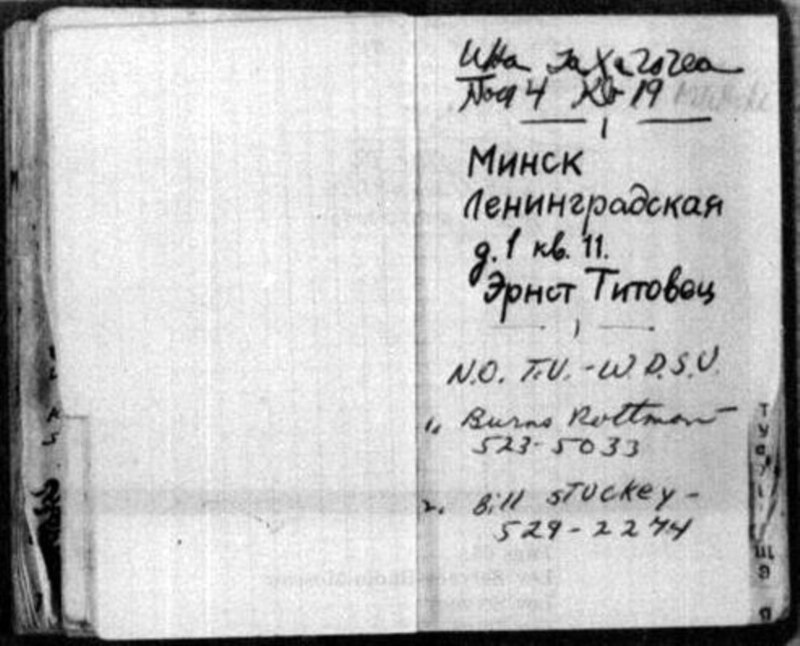 Инна
4 кв 19
Минск
Ленинградская
д. 1 кв. 11.
Эрнст Титовец
N.O. T.V. - W.D.S.U.
1. Burns Rottman
523-5033
2. Bill stuckey -
529-2274
Т
У
Щ
Э
Я